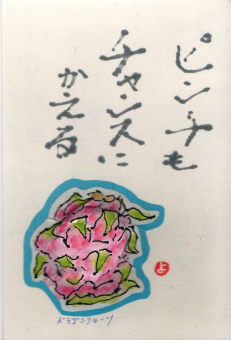 ピンチも
チャンスに
かえる
ドラゴンフルーツ
よ